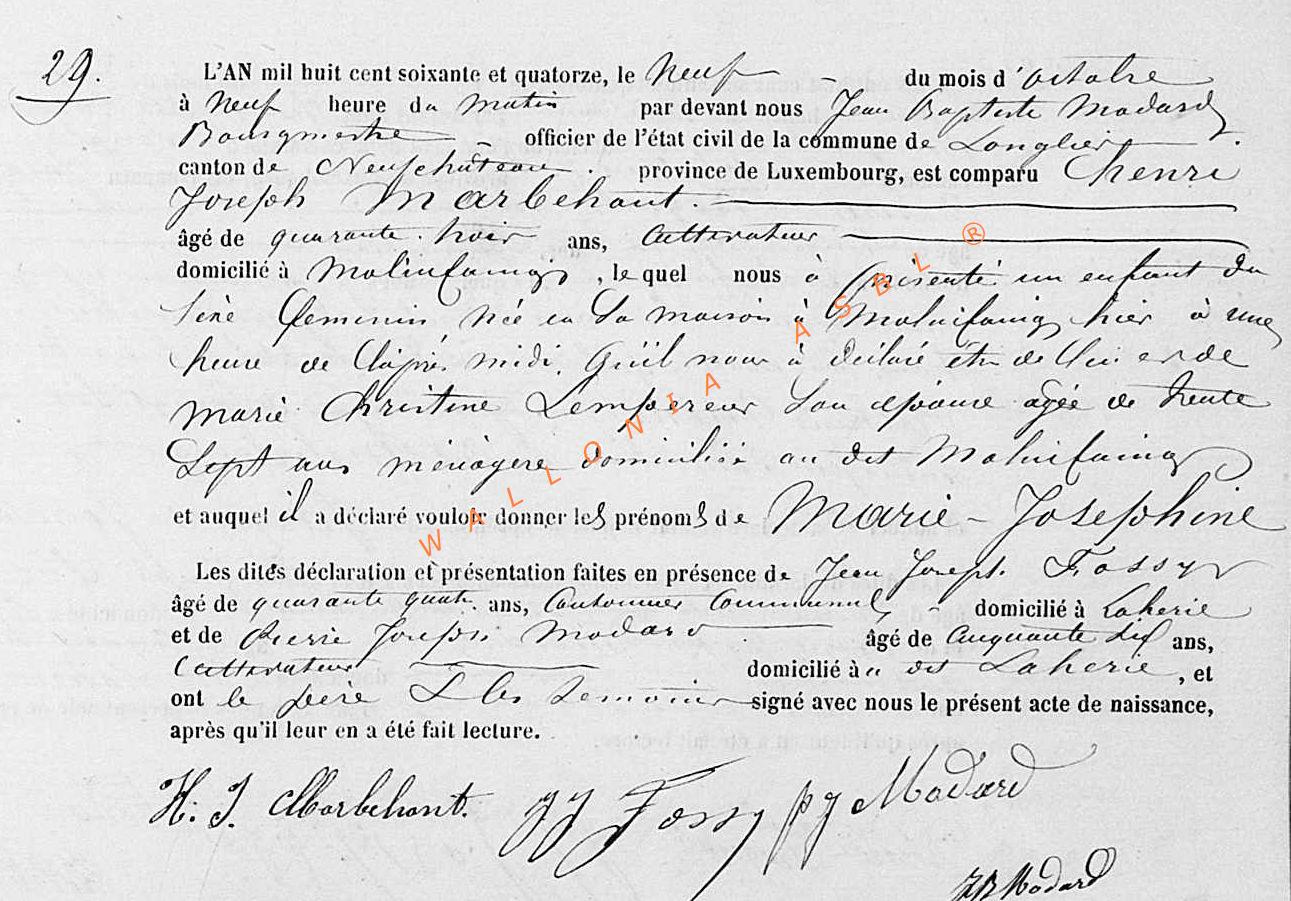 29.
L'AN mil huit cent soixante et quatorze, le Neuf du mois d'octobre
à Neuf heure du matin par devant nous Jean Baptiste Modard
Bourgmestre officier de l'état civil de la commune de Longlier
canton de Neufchâteau. province de Luxembourg, est comparu Henri
Joseph Marbehant.
âgé de quarante trois ans, Cultivateur
domicilié à Molinfaing, lequel nous à présenté un enfant du
sexe feminin née en sa maison à Molinfaing hier à une
heure de l'après midi, qu'il nous à déclaré être de lui et de
Marie Christine Lempereur son épouse agée de trente
Sept ans ménagère domiciliée au dit Molinfaing
et auquel il a déclaré vouloir donner les prénoms de Marie - Josephine
Les dites déclaration et présentation faites en présence de Jean Joseph Fossy
âgé de quarante quatre ans, Cantonnier Communal domicilié à Laherie
et de Pierre Joseph Modard âgé de cinquante six ans,
Cultivateur domicilié à dit Laherie, et
ont le père & les temoins signé avec nous le présent acte de naissance,
après qu'il leur en a été fait lecture.
H. J. Marbehant. JJ Fossy pj Modard
JB Modard
WALLONIA ASBL ®